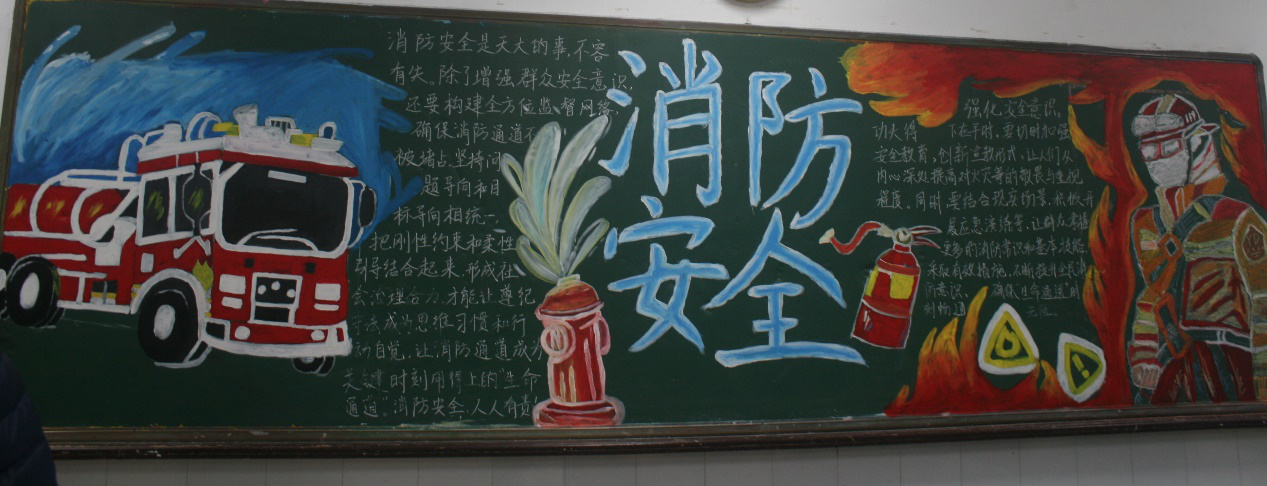 消防安全是天大的事,不容
有失。除了增强群众安全意识,
还要构建全方位监督网络,
确保消防通道不
被堵占。坚持问
题导向和目
标导向相统一,
把刚性约束和柔性
引导结合起来,形成社
会治理合力,才能让遵纪
守法成为思维习惯和行
动自觉,让消防通道成为
关键时刻用得上的“生命
通道”。消防安全,人人有责
消防
安全
强化安全意识,
功夫得下在平时。要切时加强
安全教育,创新宣教形式,让人们从
内心深处提高对火灾等的敬畏与重视
程度。同时,要结合现实场景,积极开
展应急演练等,让群众掌握
更多的消防常识和基本技能
采取有效措施,不断提升全民消
防意识,确保“生命通道”时
刻畅通无阻。